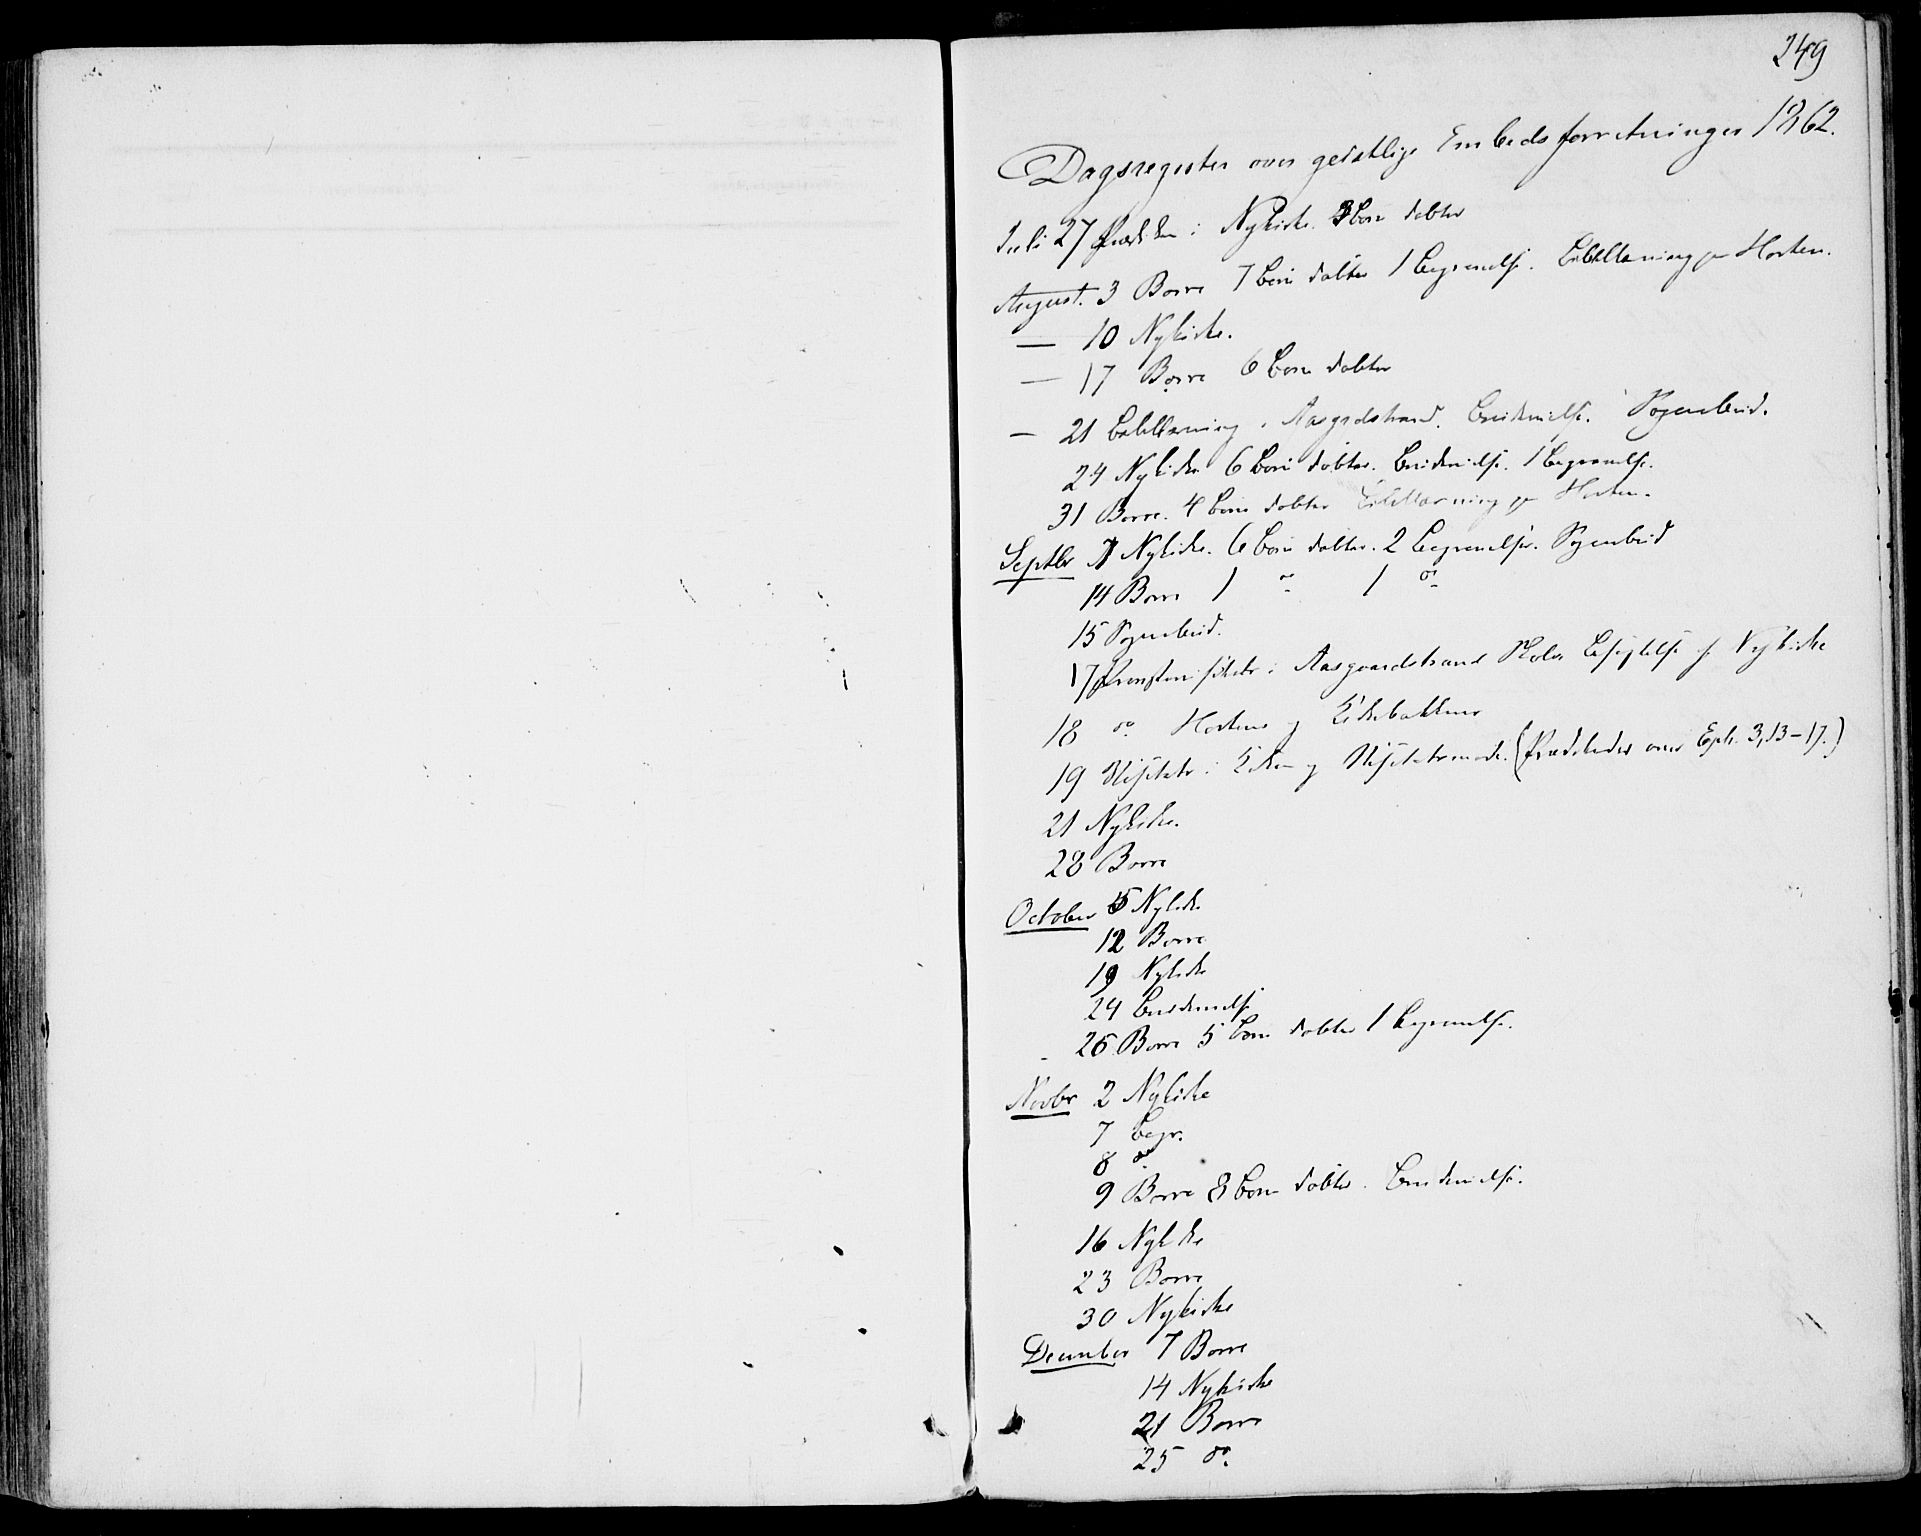 249
Dagsregister over geistlige Embedsforretninger 1862.
Juli 27 Præken i Nykirke. 3 Børn døbte
August. 3 Borre 7 Børn døbte 1 Begravelse. Bibellæsning paa Horten.
— 10 Nykirke.
— 17 Borre 6 Børn døbte
— 21 Bibellæsning i Aasgrdstrand. Brudevielse. Sognebud.
24 Nykirke 6 Børn døbte. Brudevielse. 1 Begravelse.
31 Borre. 4 Børn døbte Bibellæsning paa Horten.
Septbr 7 Nykirke. 6 Børn døbte. 2 Begravelser. Sognebud
14 Borre 1 do 1 do
15 Sognebud.
17 Provstevisitats i Aasgaardstrand Skole Besigtelse af Nykirke
18 do Hortens og Kirkebakkens
19 Visitats i Kirken og Visitatsmøde. (Prædikede over Eph. 3,13-17.)
21 Nykirke.
28 Borre
October 5 Nykirke
12 Borre
19 Nykirke
24 Brudevielse
26 Borre 5 Børn døbte 1 Begravelse.
Novbr 2 Nykirke
7 Begr.
8 do
9 Borre 8 Børn døbte. Brudevielse.
16 Nykirke
23 Borre
30 Nykirke
December 7 Borre
14 Nykirke
21 Borre
25 do